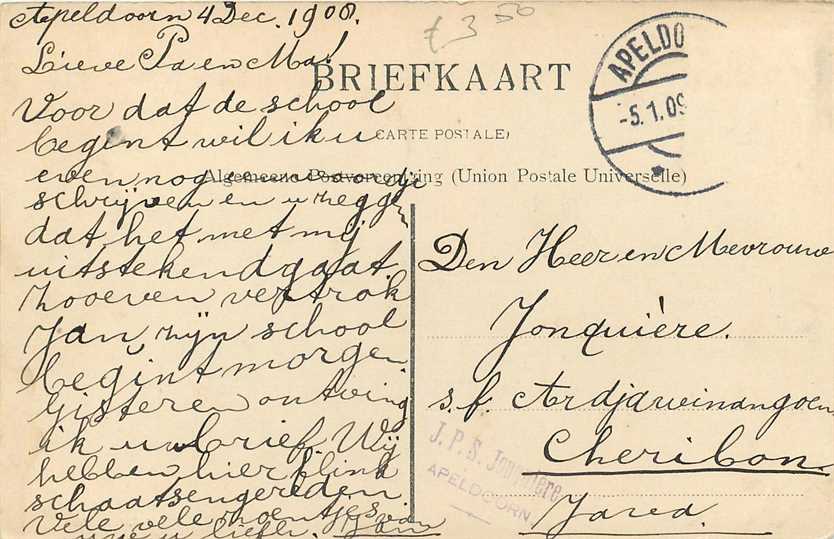 Apeldoorn 4 Dec. 1908.
£ 3 50
Lieve Pa en Ma!
BRIEFKAART
APELDO
-5.1.09
Voor dat de school
begint wil ik u
(CARTE POSTALE)
even nog een woordje
Algemeene Postvereeniging (Union Postale Universelle)
schrijven en u zeggen
dat het met mij
uitstekend gaat.
Zooeven vertrok
Jan, zijn school
begint morgen
Gisteren ontving
ik uw brief. Wij
hebben hier flink
schaatsengereden
Vele vele zoentjes van
uwe u liefh.
Den Heer en Mevrouw
Jonquière.
s.f. Ardjawinangoen
Cheribon
Java.
J.P.S. Jonquière
APELDOORN